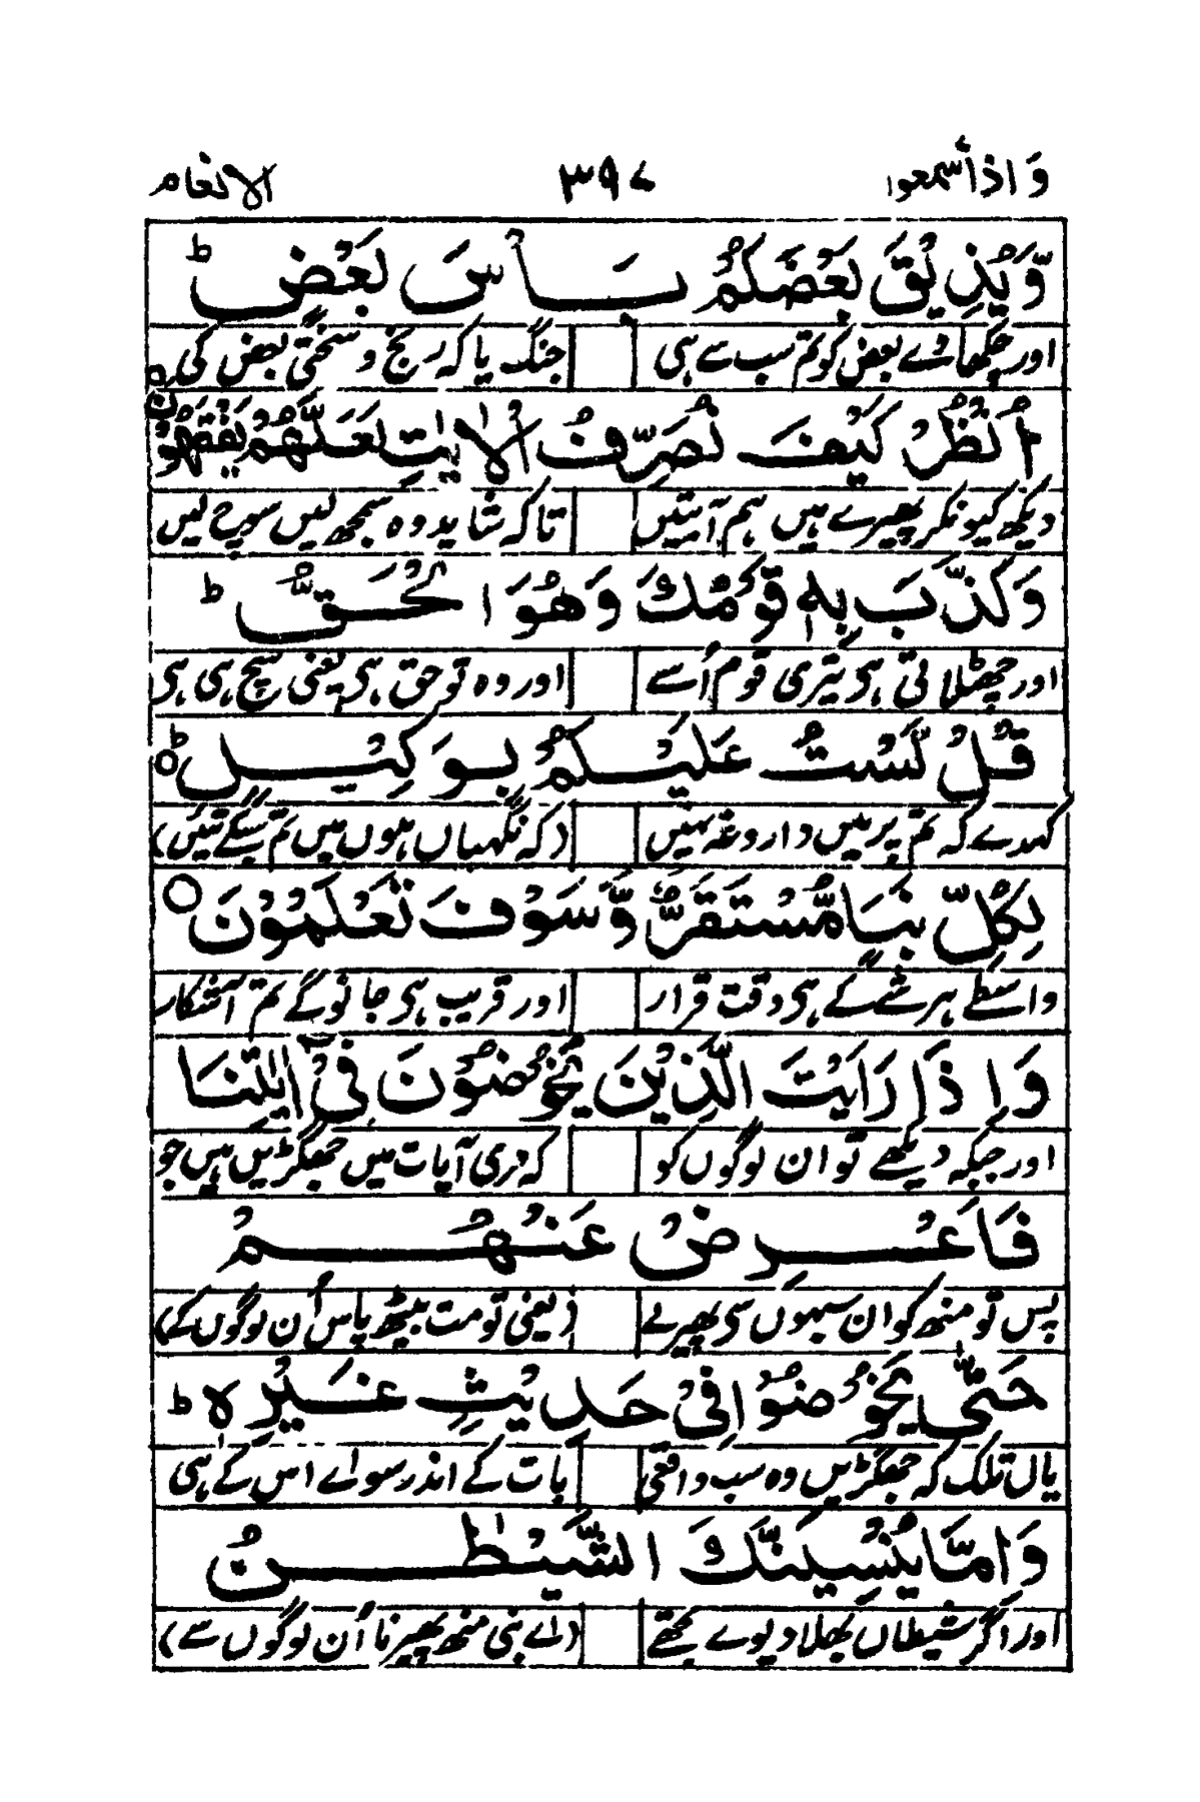 وَاذاَسمعوا ۳۹۷ الانعام
وَّيُذِيْقَ بَعْضَكُمْ بَاْسَ بَعْضٍ ط
اور چکھاوے بعض کو تم سب سے ہی جنگ یا کہ رنج و سختی بعض کی
اُنْظُرْ كَيْفَ نُصَرِّفُ الْاٰيٰتِ لَعَلَّهُمْ يَفْقَهُوْنَ ○
دیکھ کیونکر پھیرے ہیں ہم آیتیں تاکہ شاید وہ سمجھ لیں سوچ لیں
وَكَذَّبَ بِهٖ قَوْمُكَ وَهُوَ الْحَقُّ ط
اور جھٹلاتی ہی تیری قوم اُسے اور وہ تو حق ہی یعنی سچ ہی ہی
قُلْ لَّسْتُ عَلَيْكُمْ بِوَكِيْلٍ ○ ط
کہدے کہ تم پر میں داروغہ نہیں (کہ نگہباں ہوں میں تم سبکے تئیں)
لِكُلِّ نَبَاٍ مُّسْتَقَرٌّ وَّسَوْفَ تَعْلَمُوْنَ ○
واسطے ہر شے کے ہی وقت قرار اور قریب ہی جانو گے تم آشکار
وَاِذَا رَاَيْتَ الَّذِيْنَ يَخُوْضُوْنَ فِيْٓ اٰيٰتِنَا
اور جبکہ دیکھے تو ان لوگوں کو کہ مری آیات میں جھگڑیں ہیں جو
فَاَعْرِضْ عَنْهُمْ
پس تو منھ کو ان سبہوں سی پھیر لے (یعنی تو مت بیٹھ پاس اُن لوگوں کے)
حَتّٰى يَخُوْضُوْا فِيْ حَدِيْثٍ غَيْرِهٖ ط
یاں تلک کہ جھگڑیں وہ سب واقعی بات کے اندر سواے اس کے ہی
وَاِمَّا يُنْسِيَنَّكَ الشَّيْطٰنُ
اور اگر شیطاں بھلا دیوے تجھے (اے نبی منھ پھیرنا اُن لوگوں سے)